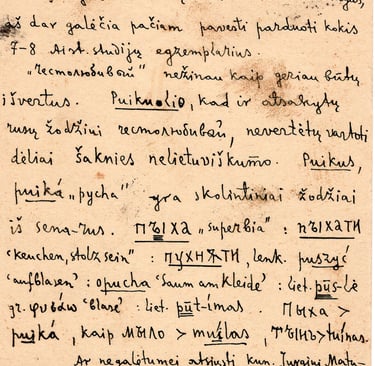 iš dar galėčia pačiam pavesti parduoti kokis
7-8 Aist. studijų egzemplarius.
„Честолюбивый" nežinau kaip geriau būtų
išvertus. Puikuolio, kad ir atsakytų
rusų žodžiui честолюбивый, nevertėtų vartoti
dėliai šaknies nelietuviškumo. Puikus,
puiká „pycha" yra skolintiniai žodžiai
iš sena-rus. пъıха „superbia" : пъıхати
'keuchen, stolz sein' : пухнѫти, lenk. puszyć
'aufblasen' : opucha 'Saum am Kleide' : liet. pūs-lė
gr. φυσάω 'blase' : liet. pūt-imas. Пыха >
puiká, kaip мыло > muilas, тъıнъ > tuinas.
Ar negalėtumei atsiųsti kun. Jurgini